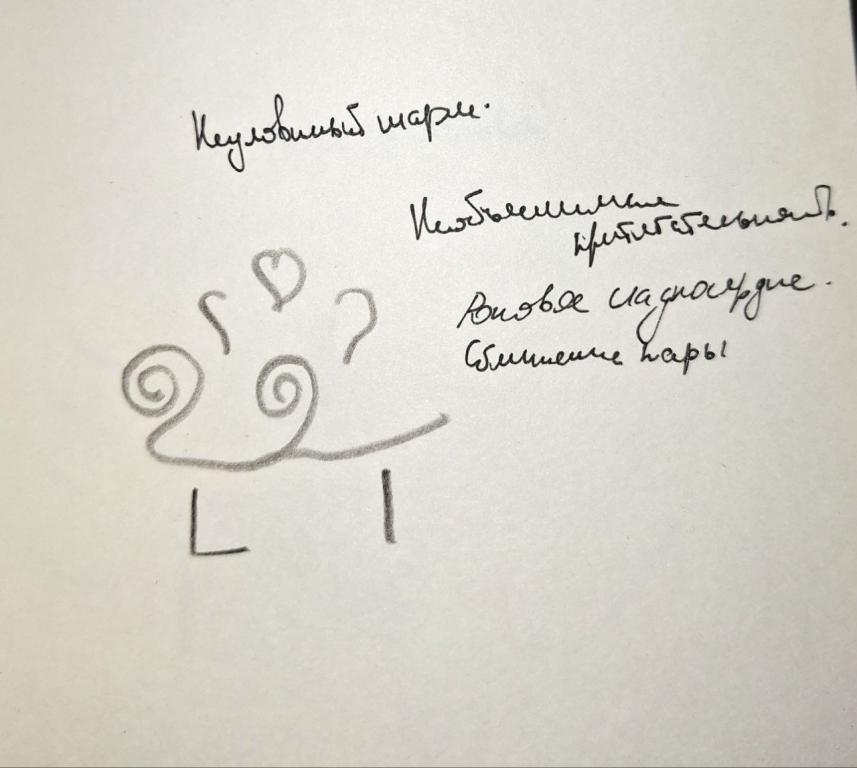 Неуловимый шарм.
Необъяснимая
притягательность.
Роковое сладострастие.
Сближение пары